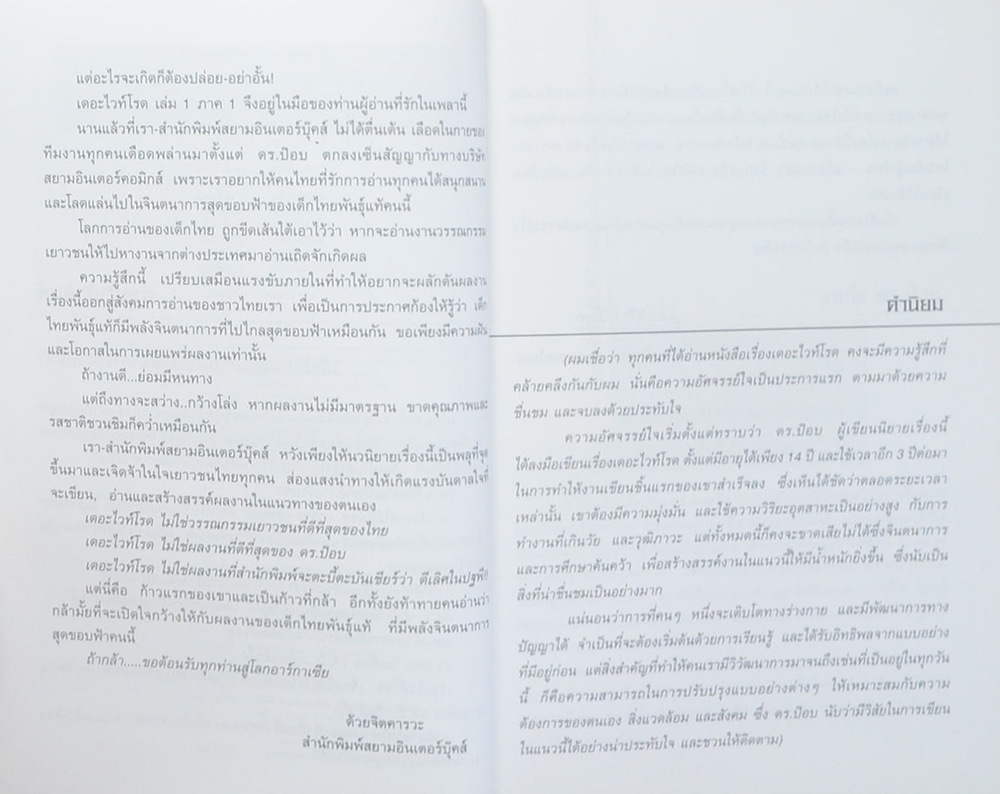 แต่อะไรจะเกิดก็ต้องปล่อย-อย่าอั้น!
เดอะไวท์โรด เล่ม 1 ภาค 1 จึงอยู่ในมือของท่านผู้อ่านที่รักในเพลานี้
นานแล้วที่เรา-สำนักพิมพ์สยามอินเตอร์บุ๊คส์ ไม่ได้ตื่นเต้น เลือดในกายของ
ทีมงานทุกคนเดือดพล่านมาตั้งแต่ ดร.ป๊อบ ตกลงเซ็นสัญญากับทางบริษัท
สยามอินเตอร์คอมิกส์ เพราะเราอยากให้คนไทยที่รักการอ่านทุกคนได้สนุกสนาน
และโลดแล่นไปในจินตนาการสุดขอบฟ้าของเด็กไทยพันธุ์แท้คนนี้
โลกการอ่านของเด็กไทย ถูกขีดเส้นใต้เอาไว้ว่า หากจะอ่านงานวรรณกรรม
เยาวชนให้ไปหางานจากต่างประเทศมาอ่านเถิดจักเกิดผล
ความรู้สึกนี้ เปรียบเสมือนแรงขับภายในที่ทำให้อยากจะผลักดันผลงาน
เรื่องนี้ออกสู่สังคมการอ่านของชาวไทยเรา เพื่อเป็นการประกาศก้องให้รู้ว่า เด็ก
ไทยพันธุ์แท้ก็มีพลังจินตนาการที่ไปไกลสุดขอบฟ้าเหมือนกัน ขอเพียงมีความฝัน
และโอกาสในการเผยแพร่ผลงานเท่านั้น
ถ้างานดี...ย่อมมีหนทาง
แต่ถึงทางจะสว่าง..กว้างโล่ง หากผลงานไม่มีมาตรฐาน ขาดคุณภาพและ
รสชาติชวนชิมก็คว่ำเหมือนกัน
เรา-สำนักพิมพ์สยามอินเตอร์บุ๊คส์ หวังเพียงให้นวนิยายเรื่องนี้เป็นพลุที่จุด
ขึ้นมาและเจิดจ้าในใจเยาวชนไทยทุกคน ส่องแสงนำทางให้เกิดแรงบันดาลใจที่
จะเขียน, อ่านและสร้างสรรค์ผลงานในแนวทางของตนเอง
เดอะไวท์โรด ไม่ใช่วรรณกรรมเยาวชนที่ดีที่สุดของไทย
เดอะไวท์โรด ไม่ใช่ผลงานที่ดีที่สุดของ ดร.ป๊อบ
เดอะไวท์โรด ไม่ใช่ผลงานที่สำนักพิมพ์จะตะบี้ตะบันเชียร์ว่า ดีเลิศในปฐพี!!
แต่นี่คือ ก้าวแรกของเขาและเป็นก้าวที่กล้า อีกทั้งยังท้าทายคนอ่านว่า
กล้ามั้ยที่จะเปิดใจกว้างให้กับผลงานของเด็กไทยพันธุ์แท้ ที่มีพลังจินตนาการ
สุดขอบฟ้าคนนี้
ถ้ากล้า.....ขอต้อนรับทุกท่านสู่โลกอาร์กาเซีย
ด้วยจิตคารวะ
สำนักพิมพ์สยามอินเตอร์บุ๊คส์
คำนิยม
(ผมเชื่อว่า ทุกคนที่ได้อ่านหนังสือเรื่องเดอะไวท์โรด คงจะมีความรู้สึกที่
คล้ายคลึงกันกับผม นั่นคือความอัศจรรย์ใจเป็นประการแรก ตามมาด้วยความ
ชื่นชม และจบลงด้วยประทับใจ
ความอัศจรรย์ใจเริ่มตั้งแต่ทราบว่า ดร.ป๊อบ ผู้เขียนนิยายเรื่องนี้
ได้ลงมือเขียนเรื่องเดอะไวท์โรด ตั้งแต่มีอายุได้เพียง 14 ปี และใช้เวลาอีก 3 ปีต่อมา
ในการทำให้งานเขียนชิ้นแรกของเขาสำเร็จลง ซึ่งเห็นได้ชัดว่าตลอดระยะเวลา
เหล่านั้น เขาต้องมีความมุ่งมั่น และใช้ความวิริยะอุตสาหะเป็นอย่างสูง กับการ
ทำงานที่เกินวัย และวุฒิภาวะ แต่ทั้งหมดนี้ก็คงจะขาดเสียไม่ได้ซึ่งจินตนาการ
และการศึกษาค้นคว้า เพื่อสร้างสรรค์งานในแนวนี้ให้มีน้ำหนักยิ่งขึ้น ซึ่งนับเป็น
สิ่งที่น่าชื่นชมเป็นอย่างมาก
แน่นอนว่าการที่คนๆ หนึ่งจะเติบโตทางร่างกาย และมีพัฒนาการทาง
ปัญญาได้ จำเป็นที่จะต้องเริ่มต้นด้วยการเรียนรู้ และได้รับอิทธิพลจากแบบอย่าง
ที่มีอยู่ก่อน แต่สิ่งสำคัญที่ทำให้คนเรามีวิวัฒนาการมาจนถึงเช่นที่เป็นอยู่ในทุกวัน
นี้ ก็คือความสามารถในการปรับปรุงแบบอย่างต่างๆ ให้เหมาะสมกับความ
ต้องการของตนเอง สิ่งแวดล้อม และสังคม ซึ่ง ดร.ป๊อบ นับว่ามีวิสัยในการเขียน
ในแนวนี้ได้อย่างน่าประทับใจ และชวนให้ติดตาม)